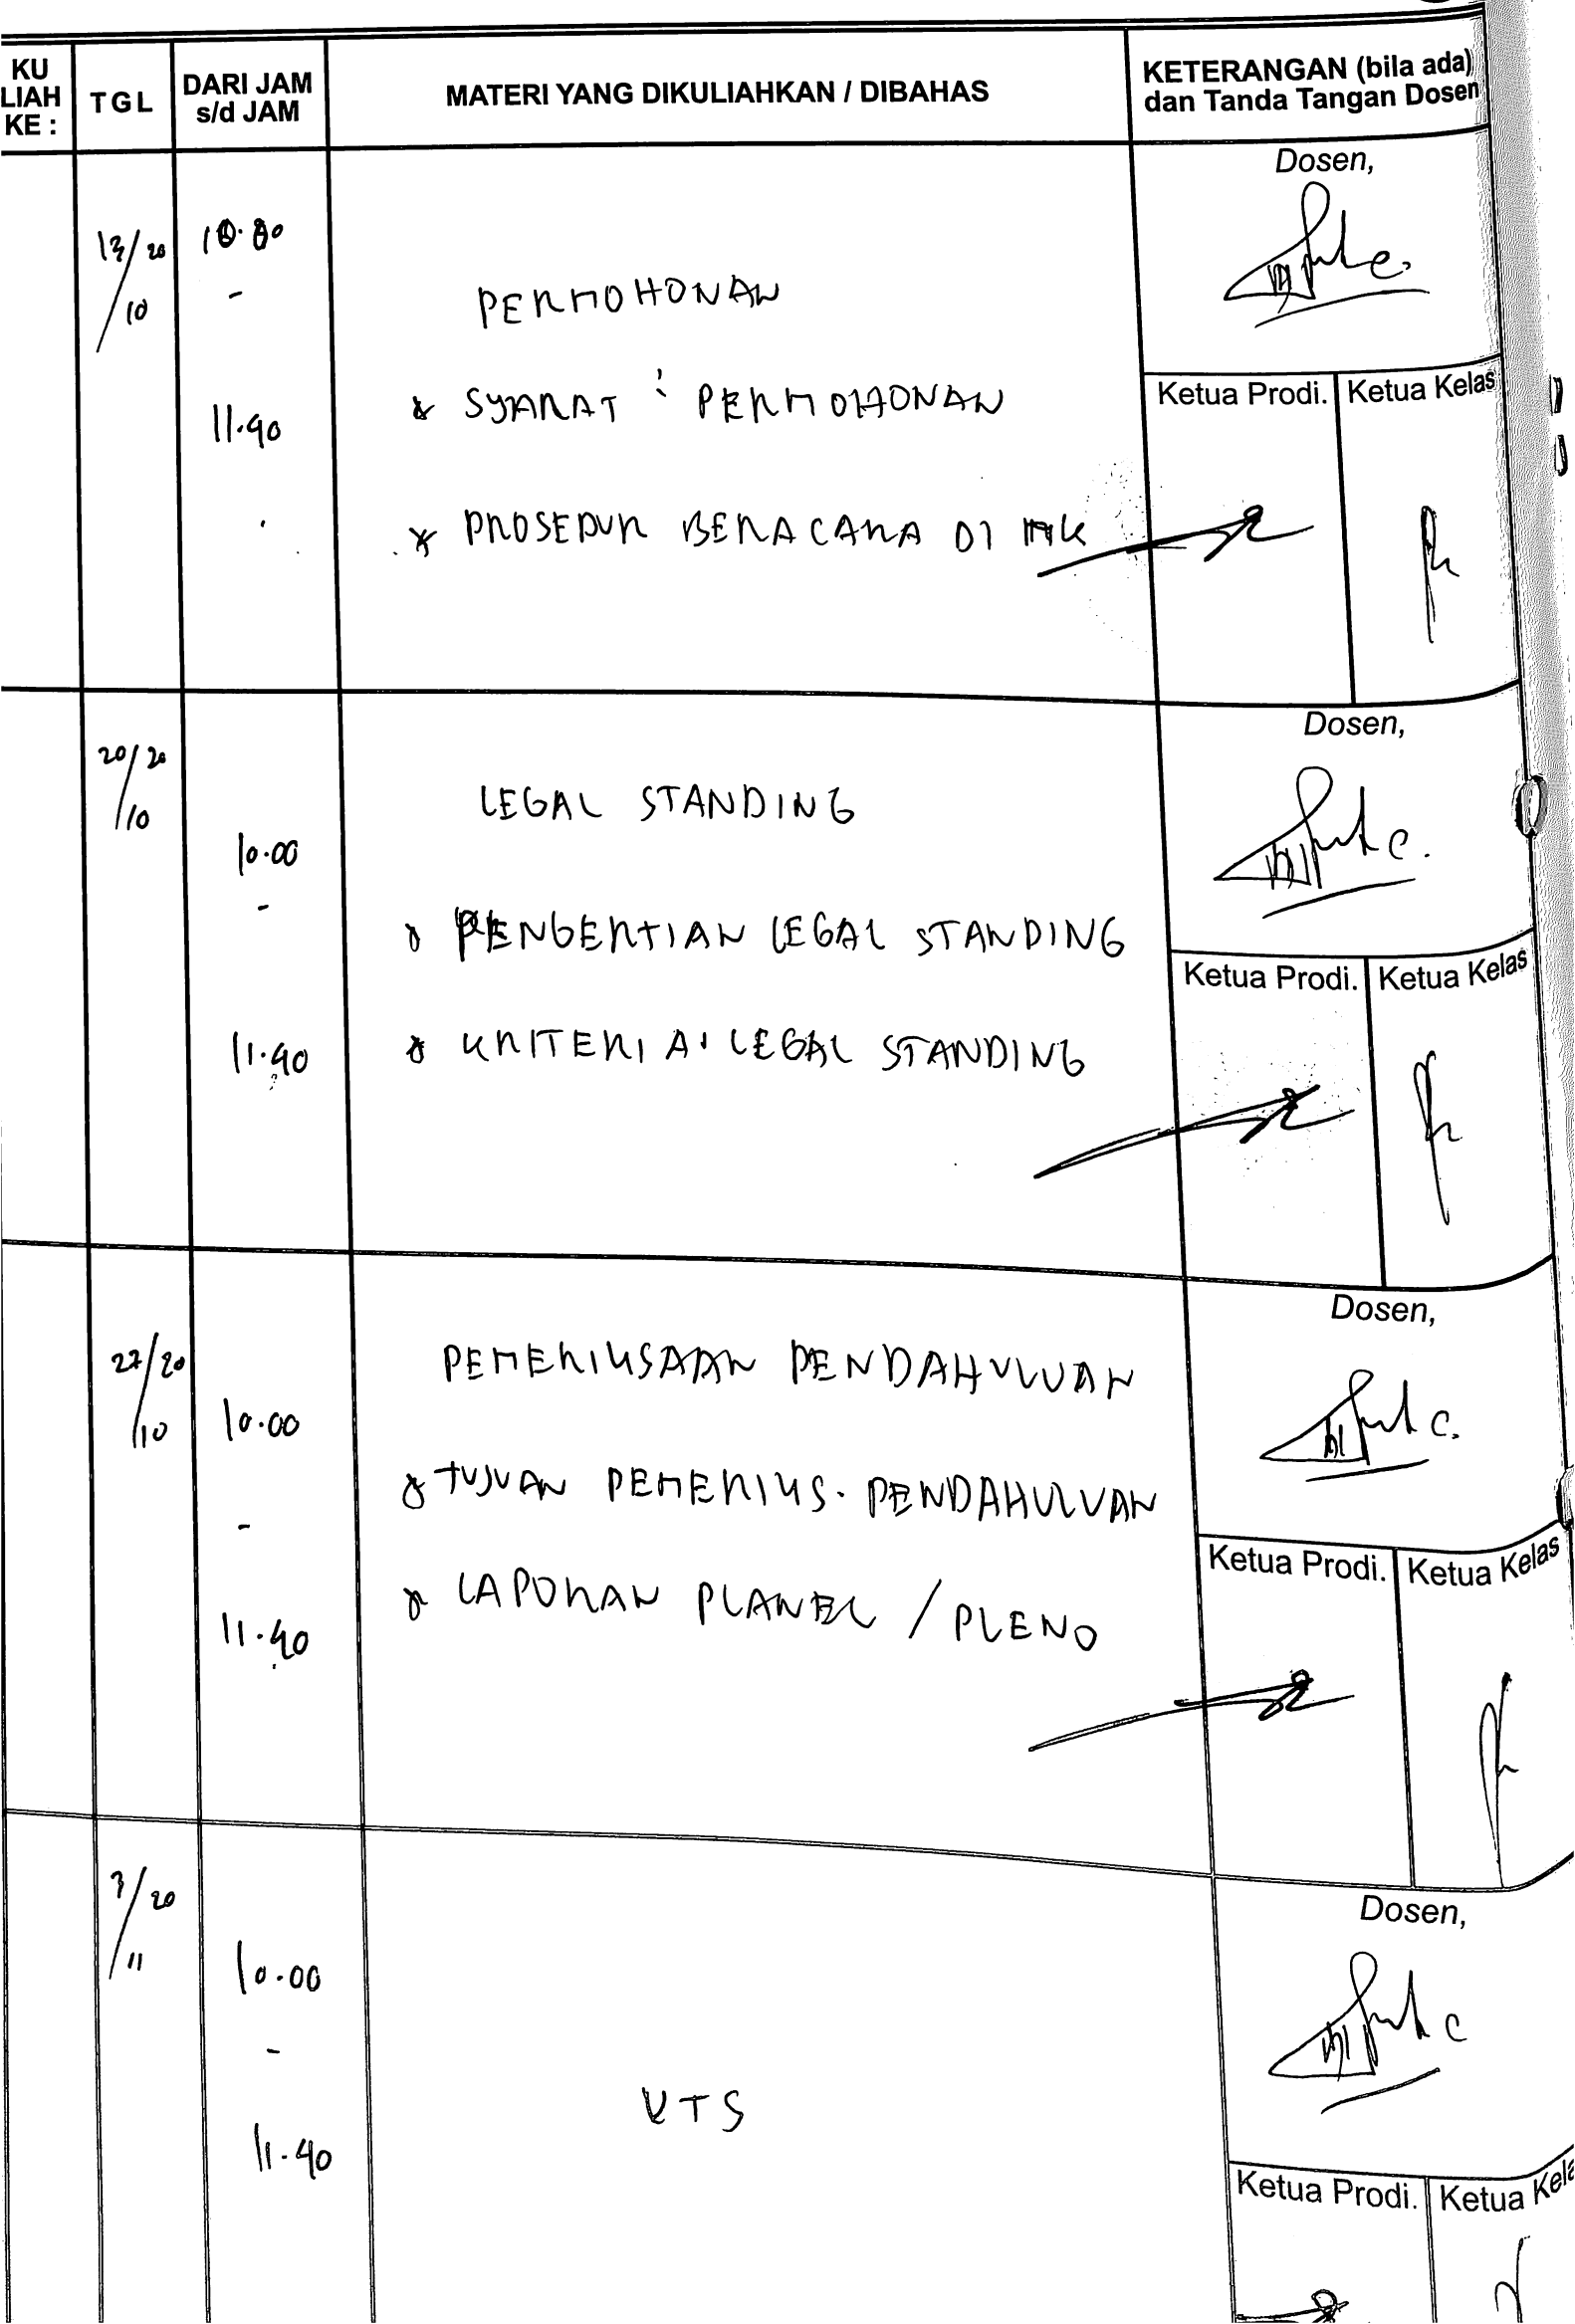 KU
LIAH
KE :
TGL
DARI JAM
s/d JAM
MATERI YANG DIKULIAHKAN / DIBAHAS
KETERANGAN (bila ada)
dan Tanda Tangan Dosen
Dosen,
13/20
/10
10.00
-
11.40
PERMOHONAN
* SYARAT² PERMOHONAN
* PROSEDUR BERACARA DI MK
Ketua Prodi.
Ketua Kelas
Dosen,
20/20
/10
10.00
-
11.40
LEGAL STANDING
* PENGERTIAN LEGAL STANDING
* KRITERIA² LEGAL STANDING
Ketua Prodi.
Ketua Kelas
Dosen,
27/20
/10
10.00
-
11.40
PEMERIKSAAN PENDAHULUAN
* TUJUAN PEMERIKS. PENDAHULUAN
* LAPORAN PLANEL / PLENO
Ketua Prodi.
Ketua Kelas
Dosen,
3/20
/11
10.00
-
11.40
UTS
Ketua Prodi.
Ketua Kela